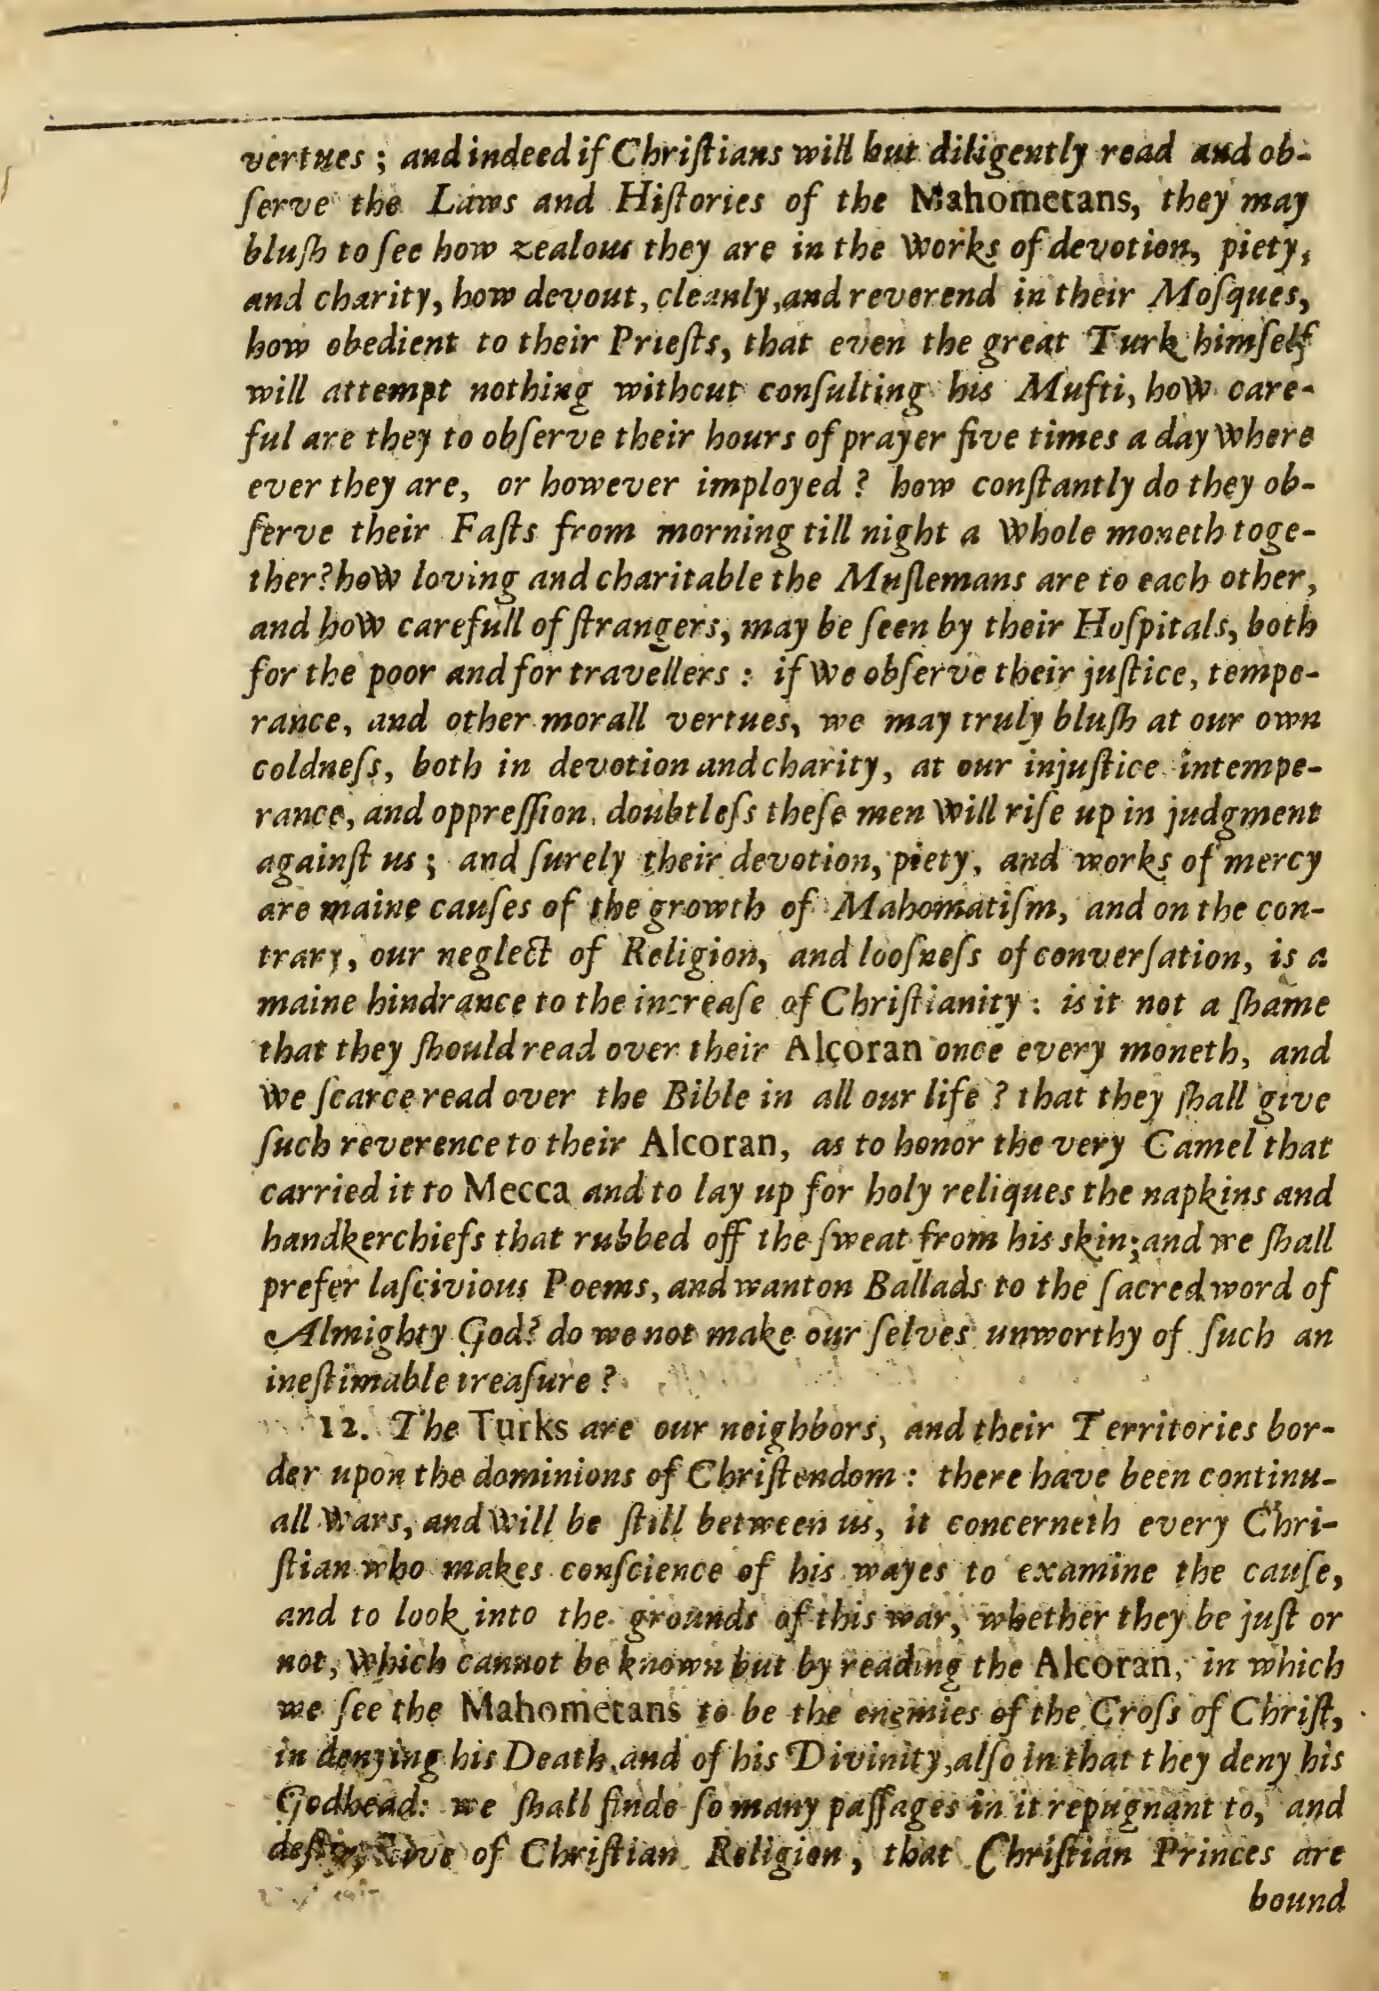 vertues ; and indeed if Chriſtians will but diligently read and ob-
ſerve the Laws and Hiſtories of the Mahometans, they may
bluſh to ſee how zealous they are in the works of devotion, piety,
and charity, how devout, cleanly, and reverend in their Moſques,
how obedient to their Prieſts, that even the great Turk himſelf
will attempt nothing without conſulting his Mufti, how care-
ful are they to obſerve their hours of prayer five times a day where
ever they are, or however imployed ? how conſtantly do they ob-
ſerve their Faſts from morning till night a whole moneth toge-
ther? how loving and charitable the Muſlemans are to each other,
and how carefull of ſtrangers, may be ſeen by their Hoſpitals, both
for the poor and for travellers : if we obſerve their juſtice, tempe-
rance, and other morall vertues, we may truly bluſh at our own
coldneſs, both in devotion and charity, at our injuſtice intempe-
rance, and oppreſſion, doubtleſs theſe men will riſe up in judgment
againſt us ; and ſurely their devotion, piety, and works of mercy
are maine cauſes of the growth of Mahomatiſm, and on the con-
trary, our neglect of Religion, and looſneſs of converſation, is a
maine hindrance to the increaſe of Chriſtianity : is it not a ſhame
that they ſhould read over their Alcoran once every moneth, and
we ſcarce read over the Bible in all our life ? that they ſhall give
ſuch reverence to their Alcoran, as to honor the very Camel that
carried it to Mecca and to lay up for holy reliques the napkins and
handkerchiefs that rubbed off the ſweat from his skin; and we ſhall
prefer laſcivious Poems, and wanton Ballads to the ſacred word of
Almighty God? do we not make our ſelves unworthy of ſuch an
ineſtimable treaſure ?
12. The Turks are our neighbors, and their Territories bor-
der upon the dominions of Chriſtendom : there have been continu-
all Wars, and will be ſtill between us, it concerneth every Chri-
ſtian who makes conſcience of his wayes to examine the cauſe,
and to look into the grounds of this war, whether they be juſt or
not, which cannot be known but by reading the Alcoran, in which
we ſee the Mahometans to be the enemies of the Croſs of Chriſt,
in denying his Death, and of his Divinity, alſo in that they deny his
Godhead: we ſhall finde ſo many paſſages in it repugnant to, and
deſtructive of Chriſtian Religion, that Chriſtian Princes are
bound